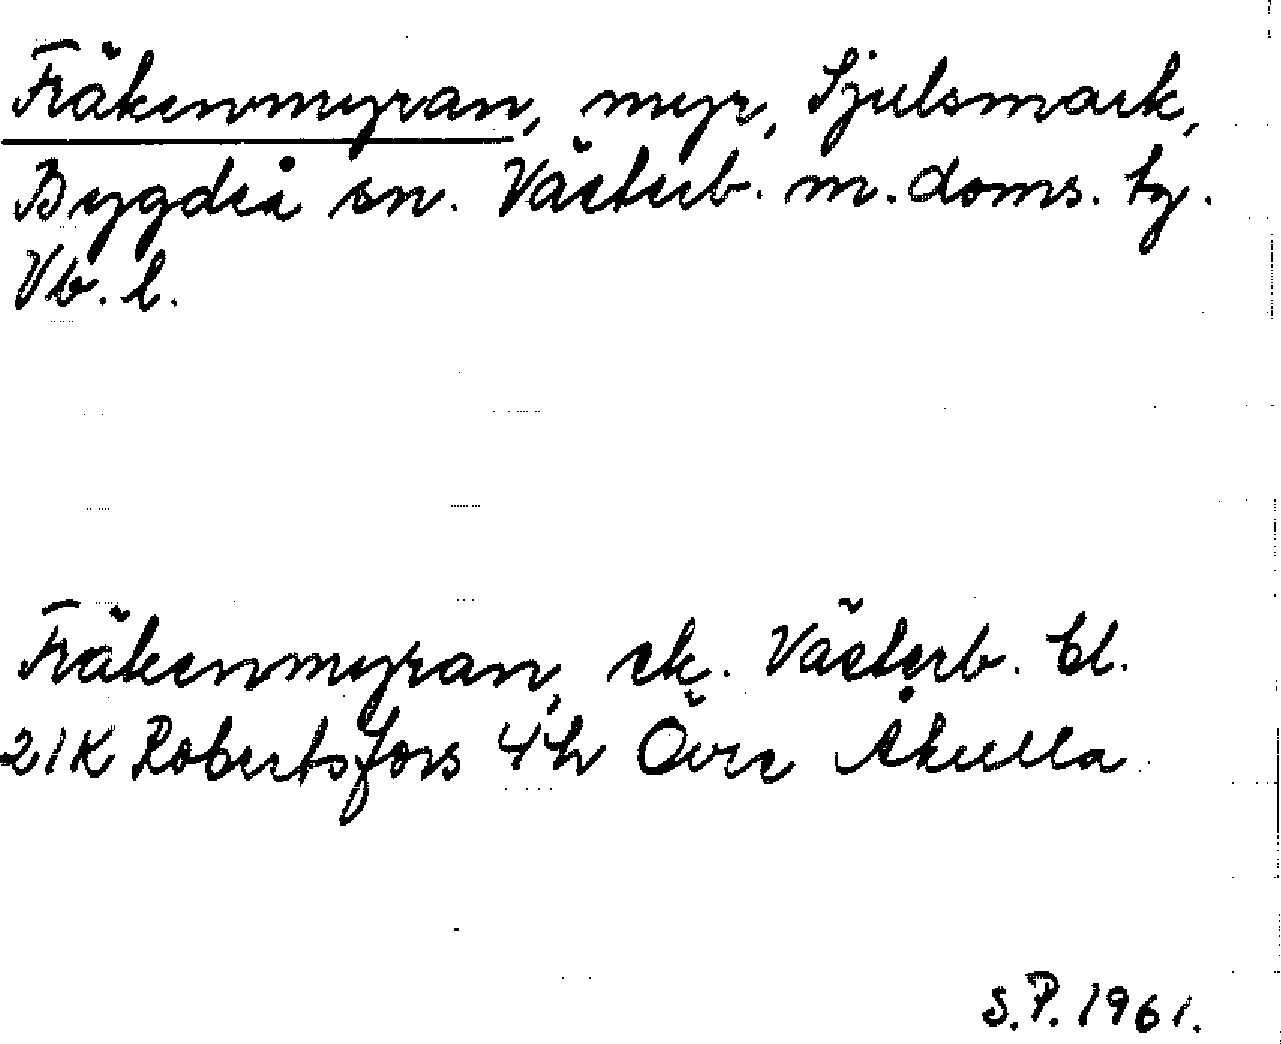 Fräkenmyran, myr, Sjulsmark,
Bygdeå sn. Västerb. m. doms. tg.
Vb. l.
Fräkenmyran, ek. Västerb. bl.
21K Robertsfors 4h Övre Åkulla
S.P. 1961.